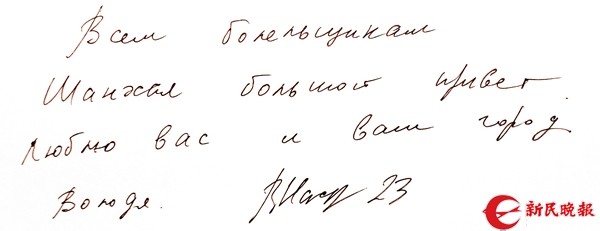 Всем болельщикам
Шанхая большой привет
Люблю вас и ваш город
Володя. 23
新民晚报